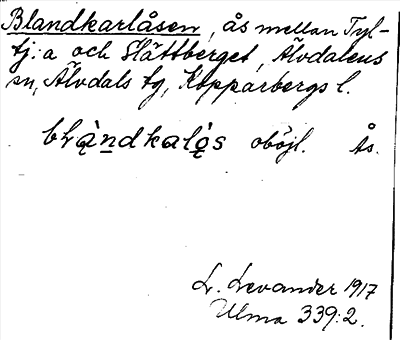 Blandkarlåsen, ås mellan Tyl-
tj:a och Slättberget, Älvdalens
sn, Älvdals tg, Kopparbergs l.
bLà̠ndkalå̠s oböjl. Ås.
L. Levander 1917
Ulma 339:2.